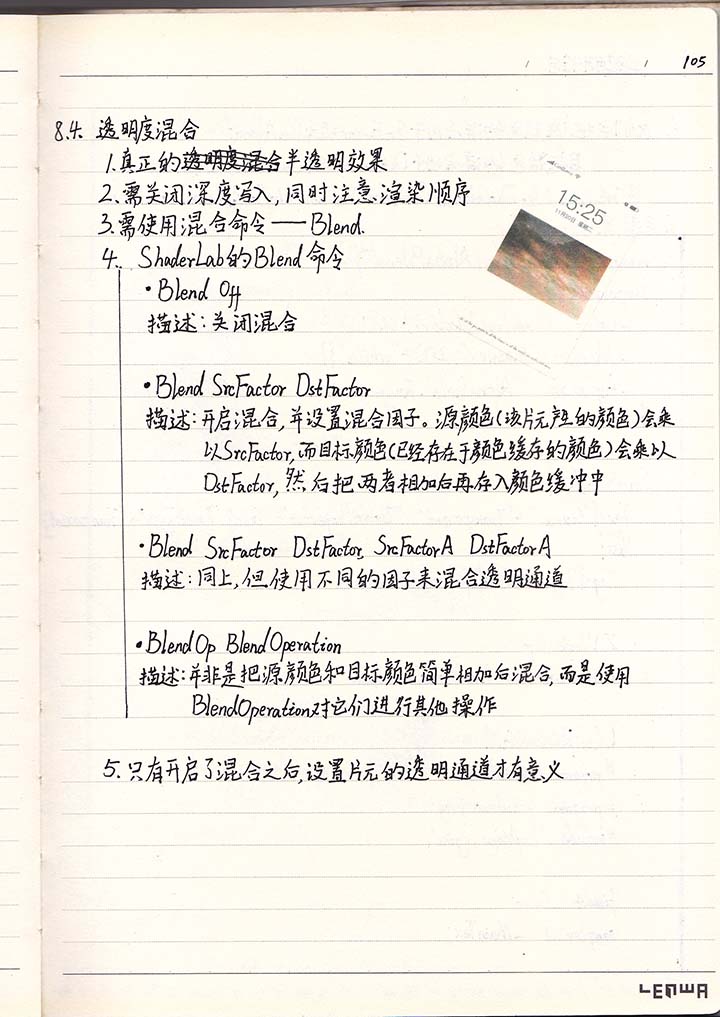 105
8.4. 透明度混合
1.真正的透明度混合半透明效果
2.需关闭深度写入,同时注意渲染顺序
3.需使用混合命令——Blend.
15:25
4. ShaderLab的Blend命令
•Blend Off
描述:关闭混合
•Blend SrcFactor DstFactor
描述:开启混合,并设置混合因子。源颜色(该片元产生的颜色)会乘
以SrcFactor,而目标颜色(已经存在于颜色缓存的颜色)会乘以
DstFactor,然后把两者相加后再存入颜色缓冲中
•Blend SrcFactor DstFactor, SrcFactorA DstFactorA
描述:同上,但使用不同的因子来混合透明通道
•BlendOp BlendOperation
描述:并非是把源颜色和目标颜色简单相加后混合,而是使用
BlendOperation对它们进行其他操作
5.只有开启了混合之后,设置片元的透明通道才有意义